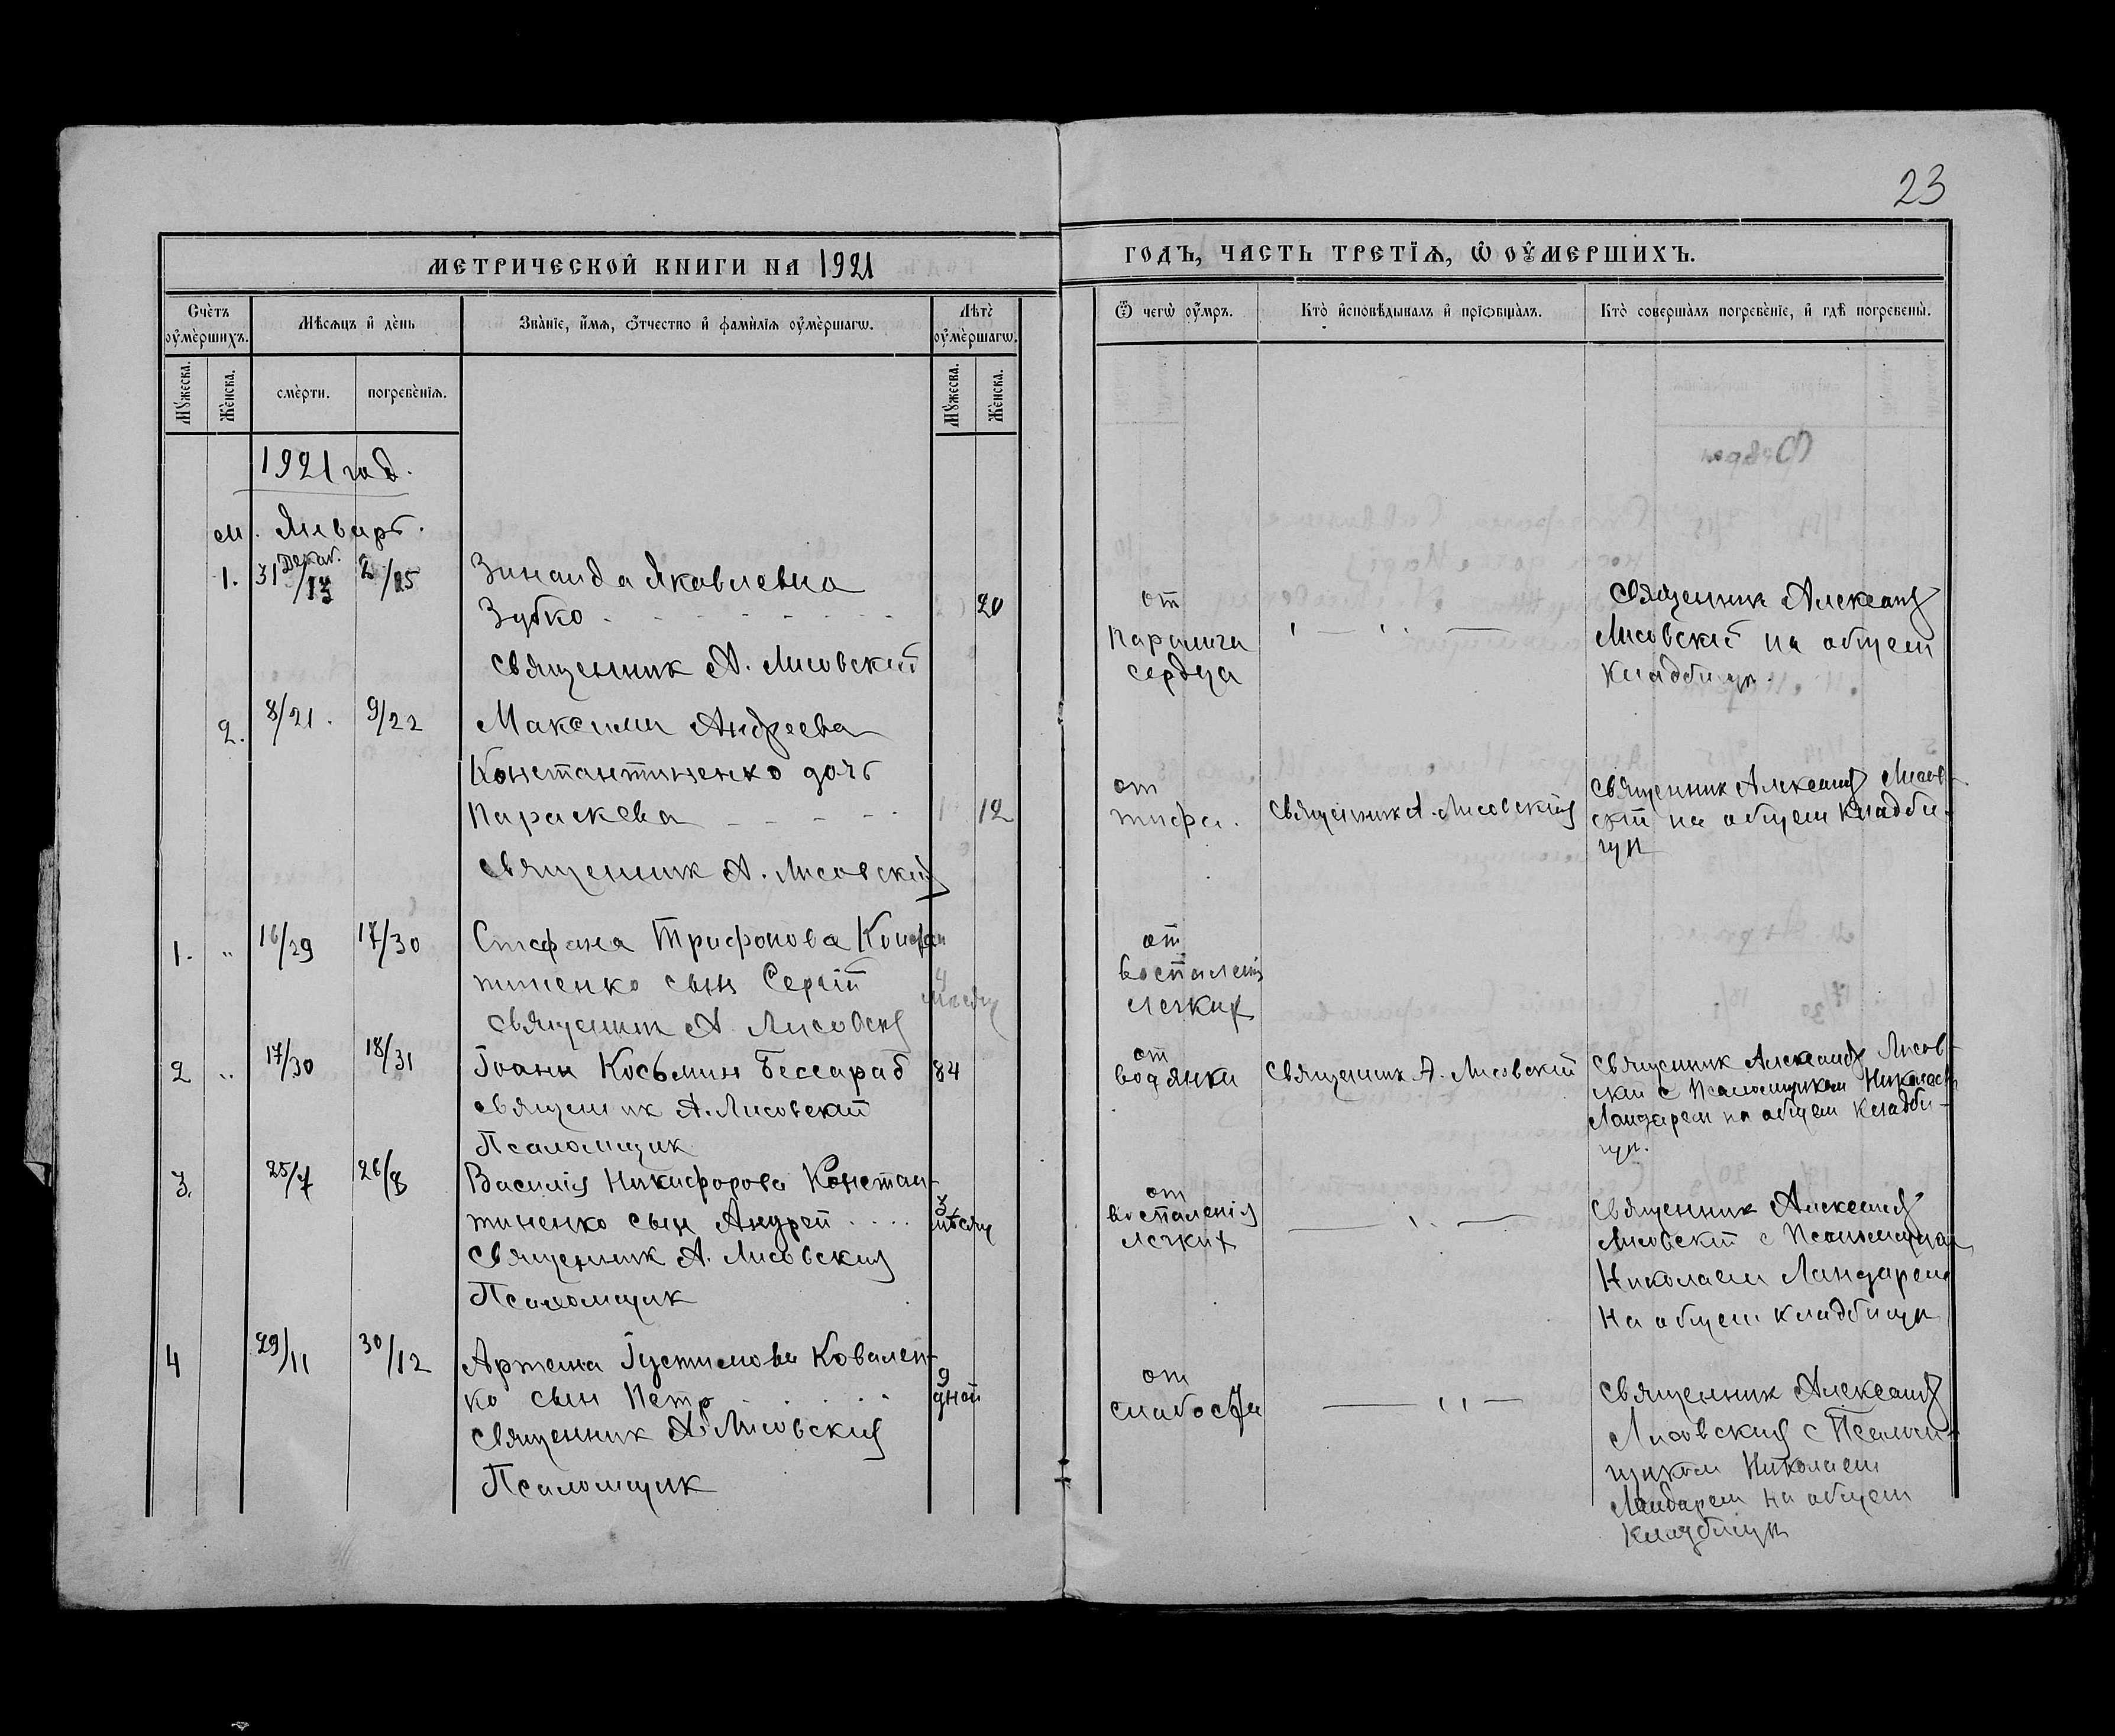 23
МЕТРИЧЕСКОЙ КНИГИ НА 1921
ГОДЪ, ЧАСТЬ ТРЕТІѦ, Ѡ ОУМЕРШИХЪ.
Счетъ оумершихъ.
Мѣсѧцъ и день
Званіе, имѧ, отчество и фамилія оумершагѡ.
Лѣтѣ оумершагѡ.
Ѿ чегѡ оумръ.
Кто исповѣдывалъ и пріѻбщалъ.
Кто совершалъ погребеніе, и гдѣ погребены.
Мужеска.
Женска.
смерти.
погребеніѧ.
Мужеска.
Женска.
1921 год.
м. Январь.
1. 31 Декаб./13 2/15 Зинаида Яковлевна
Зубко 20
Священник А. Лисовский
от
Паралича
сердца
Священник Александ
Лисовский на общем
Кладбищѣ.
2. 8/21. 9/22 Максима Андреева
Константиненко дочь
Параскева 12
Священник А. Лисовский
от
тифа.
Священник А. Лисовский
Священник Александ Лисов-
ский на общем Кладби-
щѣ
1. " 16/29 17/30 Стефана Трифонова Констан
тиненко сын Сергій 4
мѣсяц
Священник А. Лисовск
от
воспаленія
легких
2 " 17/30 18/31 Іоанн Косьмин Бессараб 84
священник А. Лисовский
Псаломщик
от
водянки
Священник А. Лисовский
Священник Александ Лисов-
ский с Псаломщиком Николаем
Ландарем на общем кладби-
щѣ.
3. 25/7 26/8 Василія Никифорова Констан-
тиненко сын Андрей 3
мѣсяц
Священник А. Лисовский
Псаломщик
от
воспаленія
легких
Священник Александ
Лисовский с Псаломщиком
Николаем Ландарем
на общем кладбищѣ
4 29/11 30/12 Артема Іустимова Ковален-
ко сын Петр 9
дней
Священник А. Лисовский
Псаломщик
от
слабости
Священник Александ
Лисовский с Псалом-
щиком Николаем
Ландарем на общем
кладбищѣ